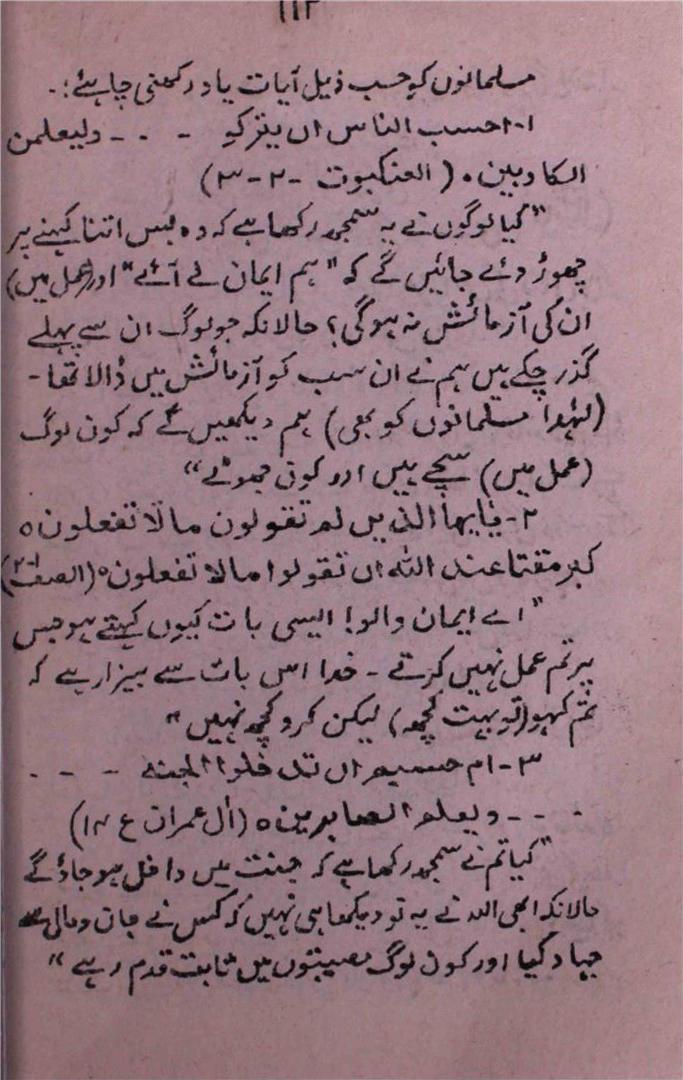 ۱۱۲
مسلمانوں کو حسب ذیل آیات یاد رکھنی چاہئے:۔
۱۔ احسب الناس ان یترکو ۔ ۔ ۔ ولیعلمن
الکاذبین ۰ ( العنکبوت ۔ ۲ ۔ ۳)
"کیا لوگوں نے یہ سمجھ رکھا ہے کہ وہ بس اتنا کہنے پر
چھوڑ دئے جائیں گے کہ "ہم ایمان لے آئے" اور (عمل میں)
ان کی آزمائش نہ ہوگی؟ حالانکہ جو لوگ ان سے پہلے
گذر چکے ہیں ہم نے ان سب کو آزمائش میں ڈالا تھا۔
(لہٰذا مسلمانوں کو بھی) ہم دیکھیں گے کہ کون لوگ
(عمل میں) سچے ہیں اور کون جھوٹے"
۲۔ یٰایہا الذین لم تقولون مالا تفعلون ۰
کبر مقتا عند اللہ ان تقولوا مالا تفعلون ۰ (الصف ۲)
"اے ایمان والو! ایسی بات کیوں کہتے ہو جس
پر تم عمل نہیں کرتے ۔ خدا اس بات سے بیزار ہے کہ
تم کہو (تو بہت کچھ) لیکن کرو کچھ نہیں"
۳۔ ام حسبتم ان تدخلوا الجنۃ ۔ ۔ ۔
۔ ۔ ۔ ویعلم الصابرین ۰ (اٰل عمران ع ۱۴)
"کیا تم نے سمجھ رکھا ہے کہ جنت میں داخل ہو جاؤ گے
حالانکہ ابھی اللہ نے یہ تو دیکھا ہی نہیں کہ کس نے جان و مال سے
جہاد کیا اور کون لوگ مصیبتوں میں ثابت قدم رہے"